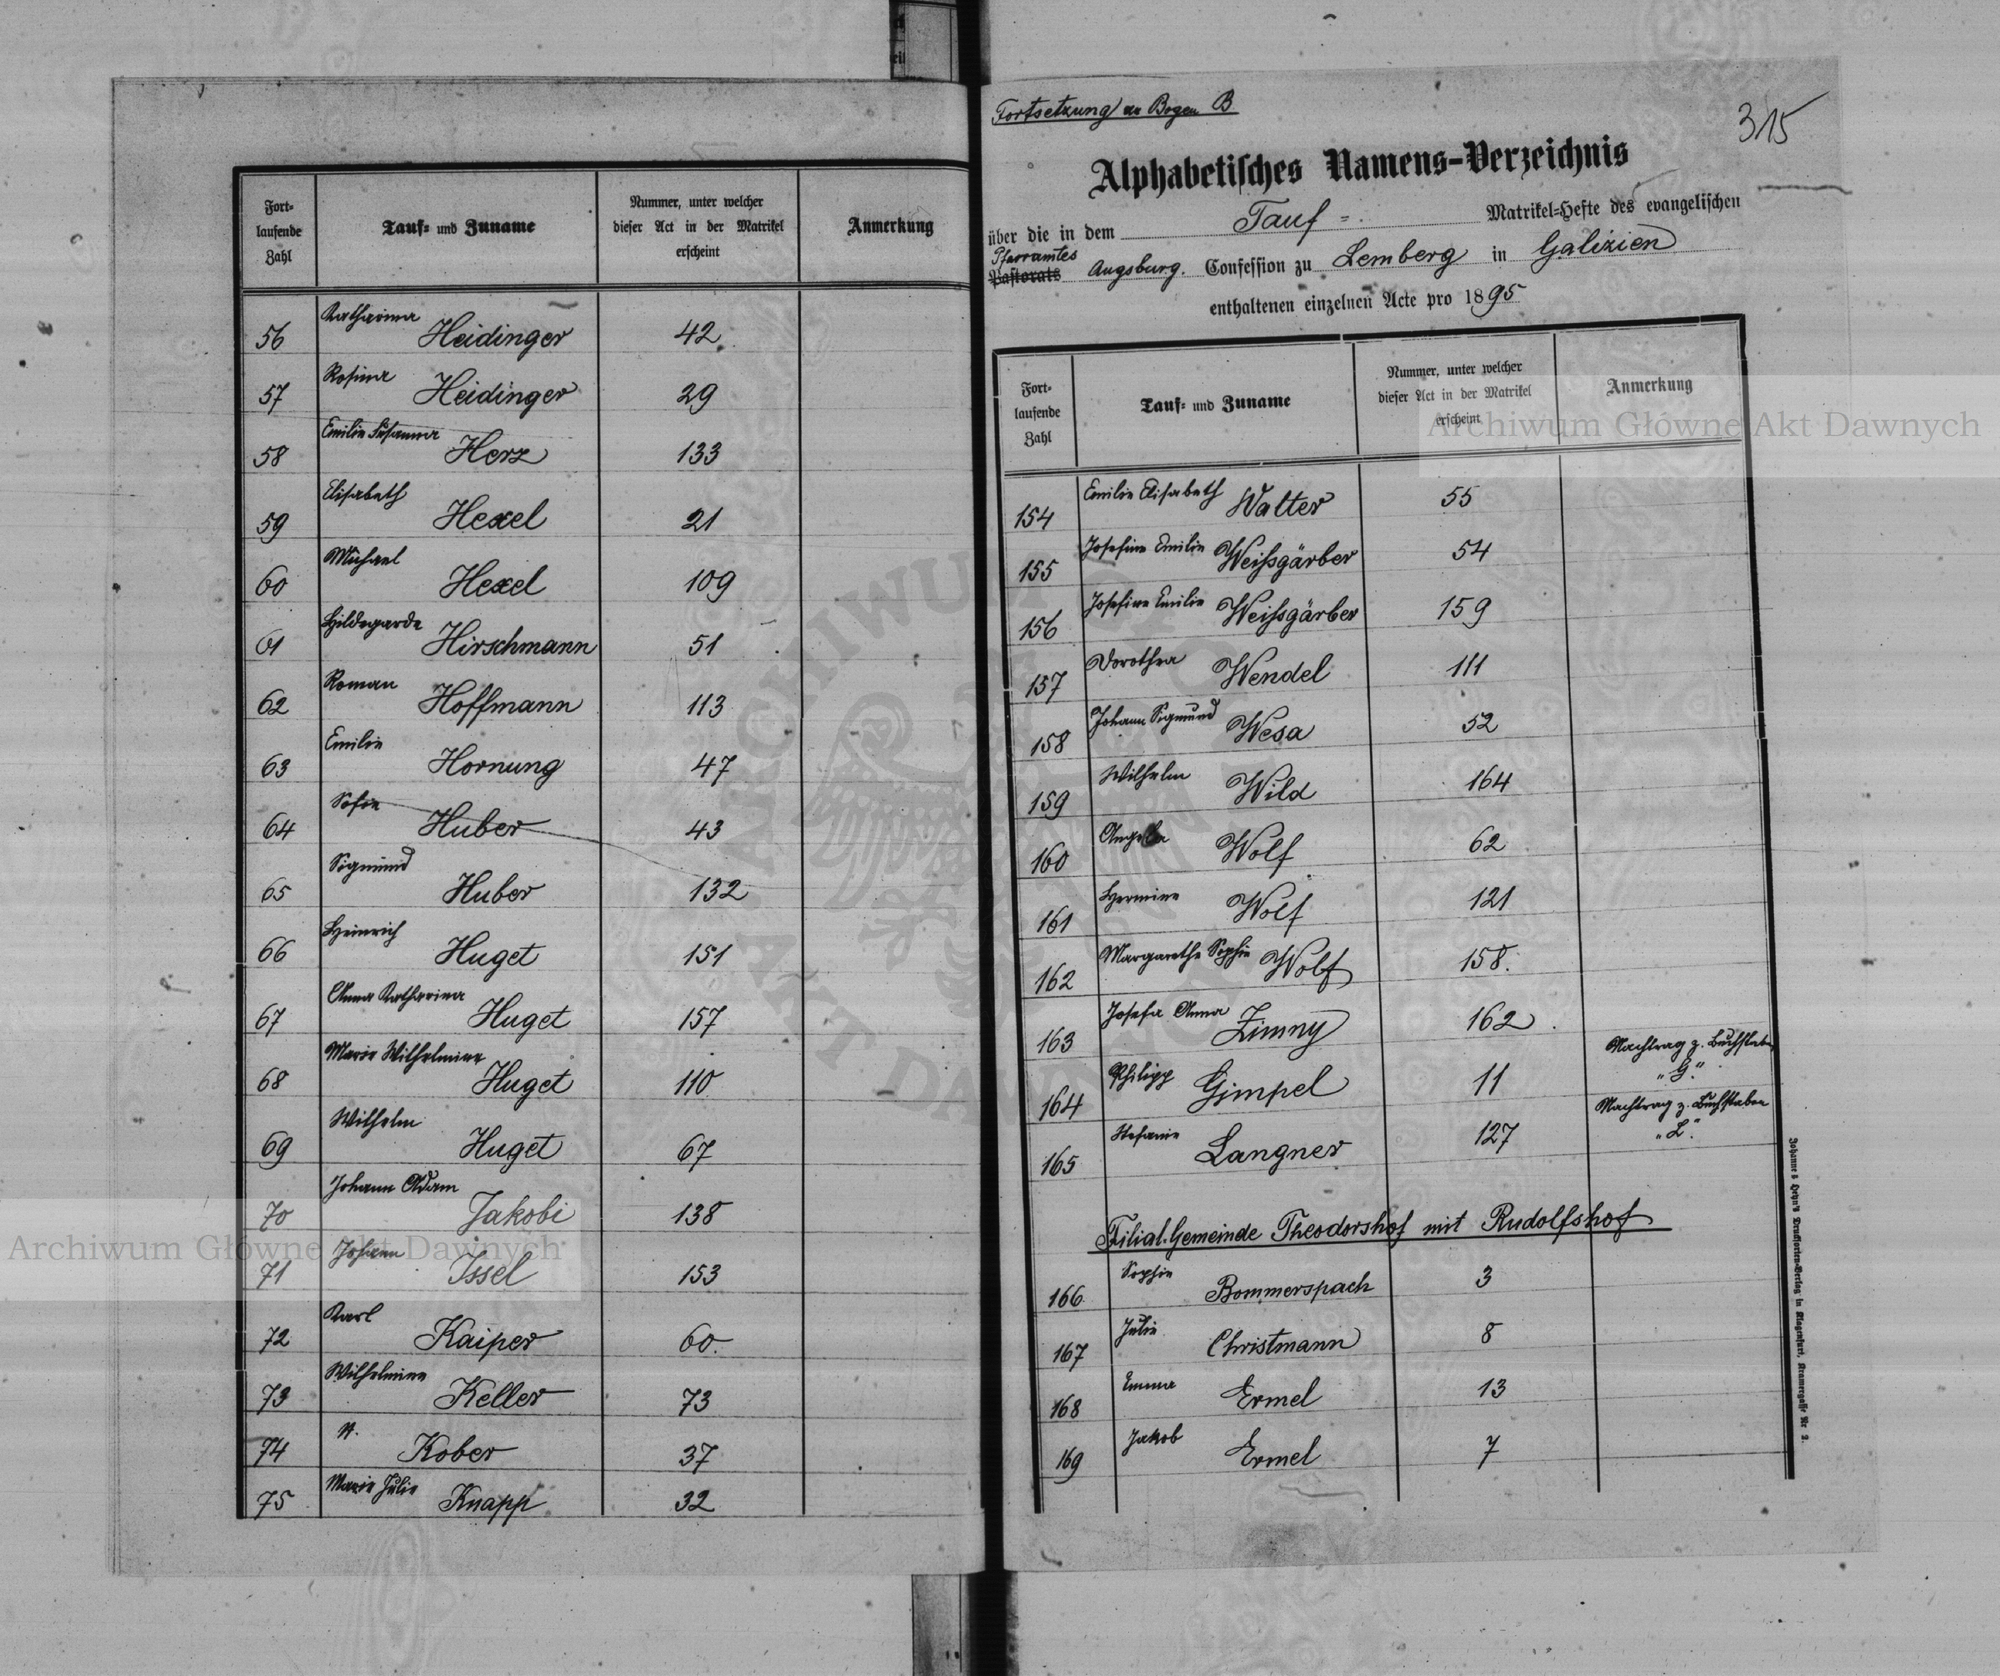 Fort-
laufende
Zahl
Tauf- und Zuname
Nummer, unter welcher
dieser Act in der Matrikel
erscheint
Anmerkung
56 Katharina Heidinger 42
57 Rosina Heidinger 29
58 Emilie Susanna Herz 133
59 Elisabeth Hexel 21
60 Michael Hexel 109
61 Hildegarde Hirschmann 51
62 Roman Hoffmann 113
63 Emilie Hornung 47
64 Sofie Huber 43
65 Sigmund Huber 132
66 Heinrich Huget 151
67 Anna Katharina Huget 157
68 Marie Wilhelmine Huget 110
69 Wilhelm Huget 67
70 Johann Adam Jakobi 138
71 Johann Issel 153
72 Karl Kaiper 60.
73 Wilhelmine Keller 73
74 N. Kober 37
75 Marie Julie Knapp 32
Fortsetzung zu Bogen B
315
Alphabetisches Namens-Verzeichnis
über die in dem Tauf- Matrikel-Hefte des evangelischen
Pfarramtes
Pastorats Augsburg. Confession zu Lemberg in Galizien
enthaltenen einzelnen Acte pro 1895
Fort-
laufende
Zahl
Tauf- und Zuname
Nummer, unter welcher
dieser Act in der Matrikel
erscheint
Anmerkung
154 Emilie Elisabeth Walter 55
155 Josefine Emilie Weißgärber 54
156 Josefine Emilie Weißgärber 159
157 Dorothea Wendel 111
158 Johann Sigmund Wesa 52
159 Wilhelm Wild 164
160 Angela Wolf 62
161 Hermine Wolf 121
162 Margarethe Sophie Wolf 158.
163 Josefa Anna Zimny 162
164 Philipp Gimpel 11 Nachtrag z. Buchstaben
„G."
165 Stefanie Langner 127 Nachtrag z. Buchstaben
„L."
Filial-Gemeinde Theodorshof mit Rudolfshof
166 Sophie Bommerspach 3
167 Julie Christmann 8
168 Emma Ermel 13
169 Jakob Ermel 7
Johannes Heyn's Drucksorten-Verlag in Klagenfurt, Kramergasse Nr 2.
Archiwum Główne Akt Dawnych
Archiwum Główne Akt Dawnych
ARCHIWUM GŁÓWNE AKT DAWNYCH